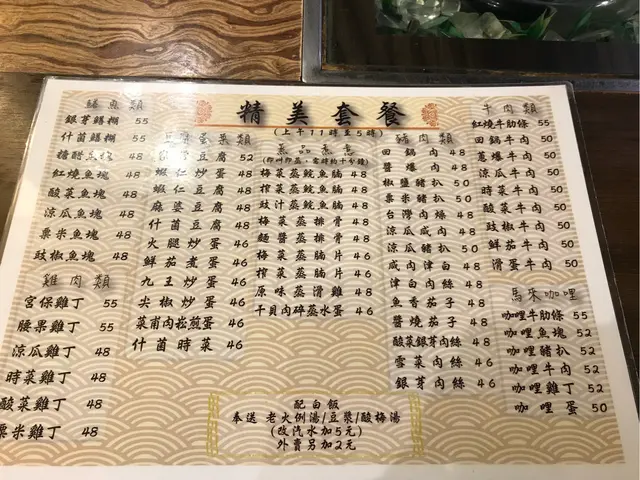 精美套餐
(上午11時至5時)
鱔魚類
銀芽鱔糊 55
什菌鱔糊 55
糖醋魚塊 48
紅燒魚塊 48
酸菜魚塊 48
涼瓜魚塊 48
粟米魚塊 48
豉椒魚塊 48
雞肉類
宮保雞丁 55
腰果雞丁 55
涼瓜雞丁 48
時菜雞丁 48
酸菜雞丁 48
粟米雞丁 48
豆腐 52
蝦仁炒蛋 48
蝦仁豆腐 48
麻婆豆腐 48
什菌豆腐 48
火腿炒蛋 46
鮮茄煮蛋 46
九王炒蛋 46
尖椒炒蛋 46
菜甫肉崧煎蛋 46
什菌時菜 46
(即叫即蒸,需時約十分鐘)
梅菜蒸鯇魚腩 48
榨菜蒸鯇魚腩 48
豉汁蒸鯇魚腩 48
梅菜蒸排骨 48
麵醬蒸排骨 48
梅菜蒸腩片 46
榨菜蒸腩片 46
原味蒸滑雞 48
干貝肉碎蒸水蛋 48
豬肉類
回鍋肉 48
醬爆肉 48
椒鹽豬扒 50
粟米豬扒 50
台灣肉燥 48
涼瓜咸肉 50
涼瓜豬扒 50
咸肉津白 48
津白肉絲 48
魚香茄子 48
醬燒茄子 48
酸菜銀芽肉絲 48
雪菜肉絲 46
銀芽肉絲 46
牛肉類
紅燒牛肋條 55
回鍋牛肉 50
蔥爆牛肉 50
涼瓜牛肉 50
時菜牛肉 50
酸菜牛肉 50
豉椒牛肉 50
鮮茄牛肉 50
滑蛋牛肉 50
馬來咖哩
咖哩牛肋條 55
咖哩魚塊 52
咖哩豬扒 52
咖哩牛肉 52
咖哩雞丁 52
咖哩蛋 50
配白飯
奉送 老火例湯/豆漿/酸梅湯
(改汽水加5元)
外賣另加2元